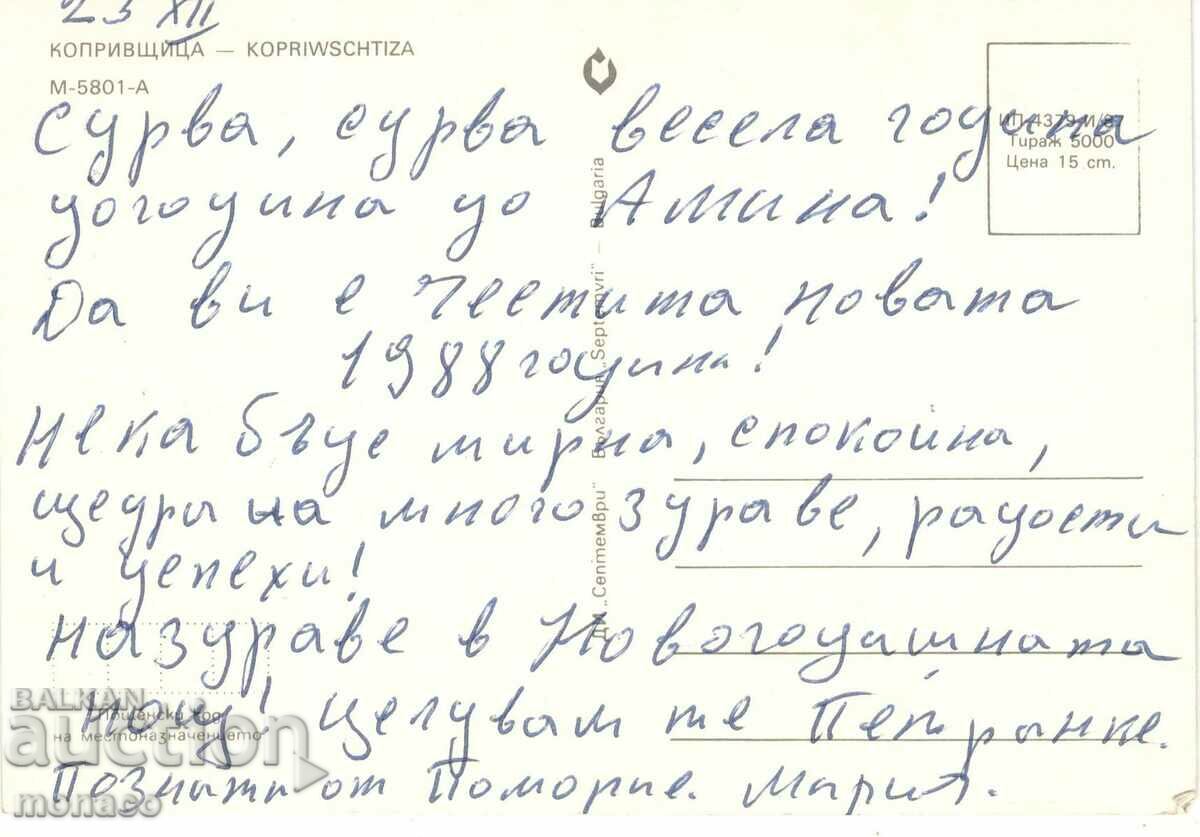 23 XII
КОПРИВЩИЦА — KOPRIWSCHTIZA
М-5801-А
ИП 4379-И/8
Тираж 5000
Цена 15 ст.
Сурва, сурва весела година
догодина до Амина!
Да ви е честита новата
1988 година!
Нека бъде мирна, спокойна,
щедра на много здраве, радости
и успехи!
Наздраве в Новогодишната
нощ! Целувам те Петранке.
Познати от Поморие. Мария.
ДИ „Септември" България „Septemvri" – Bulgaria
Пощенски код
на местоназначението
BALKAN
auction
monaco